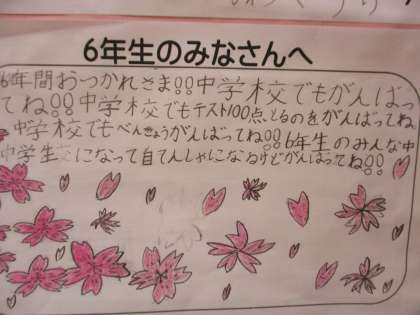 6年生のみなさんへ
6年間おつかれさま!!中学校でもがんばっ
てね!!中学校でもテスト100点とるのをがんばってね
中学校でもべんきょうがんばってね!!6年生のみんな中
中学生になって自てんしゃになるけどがんばってね!!